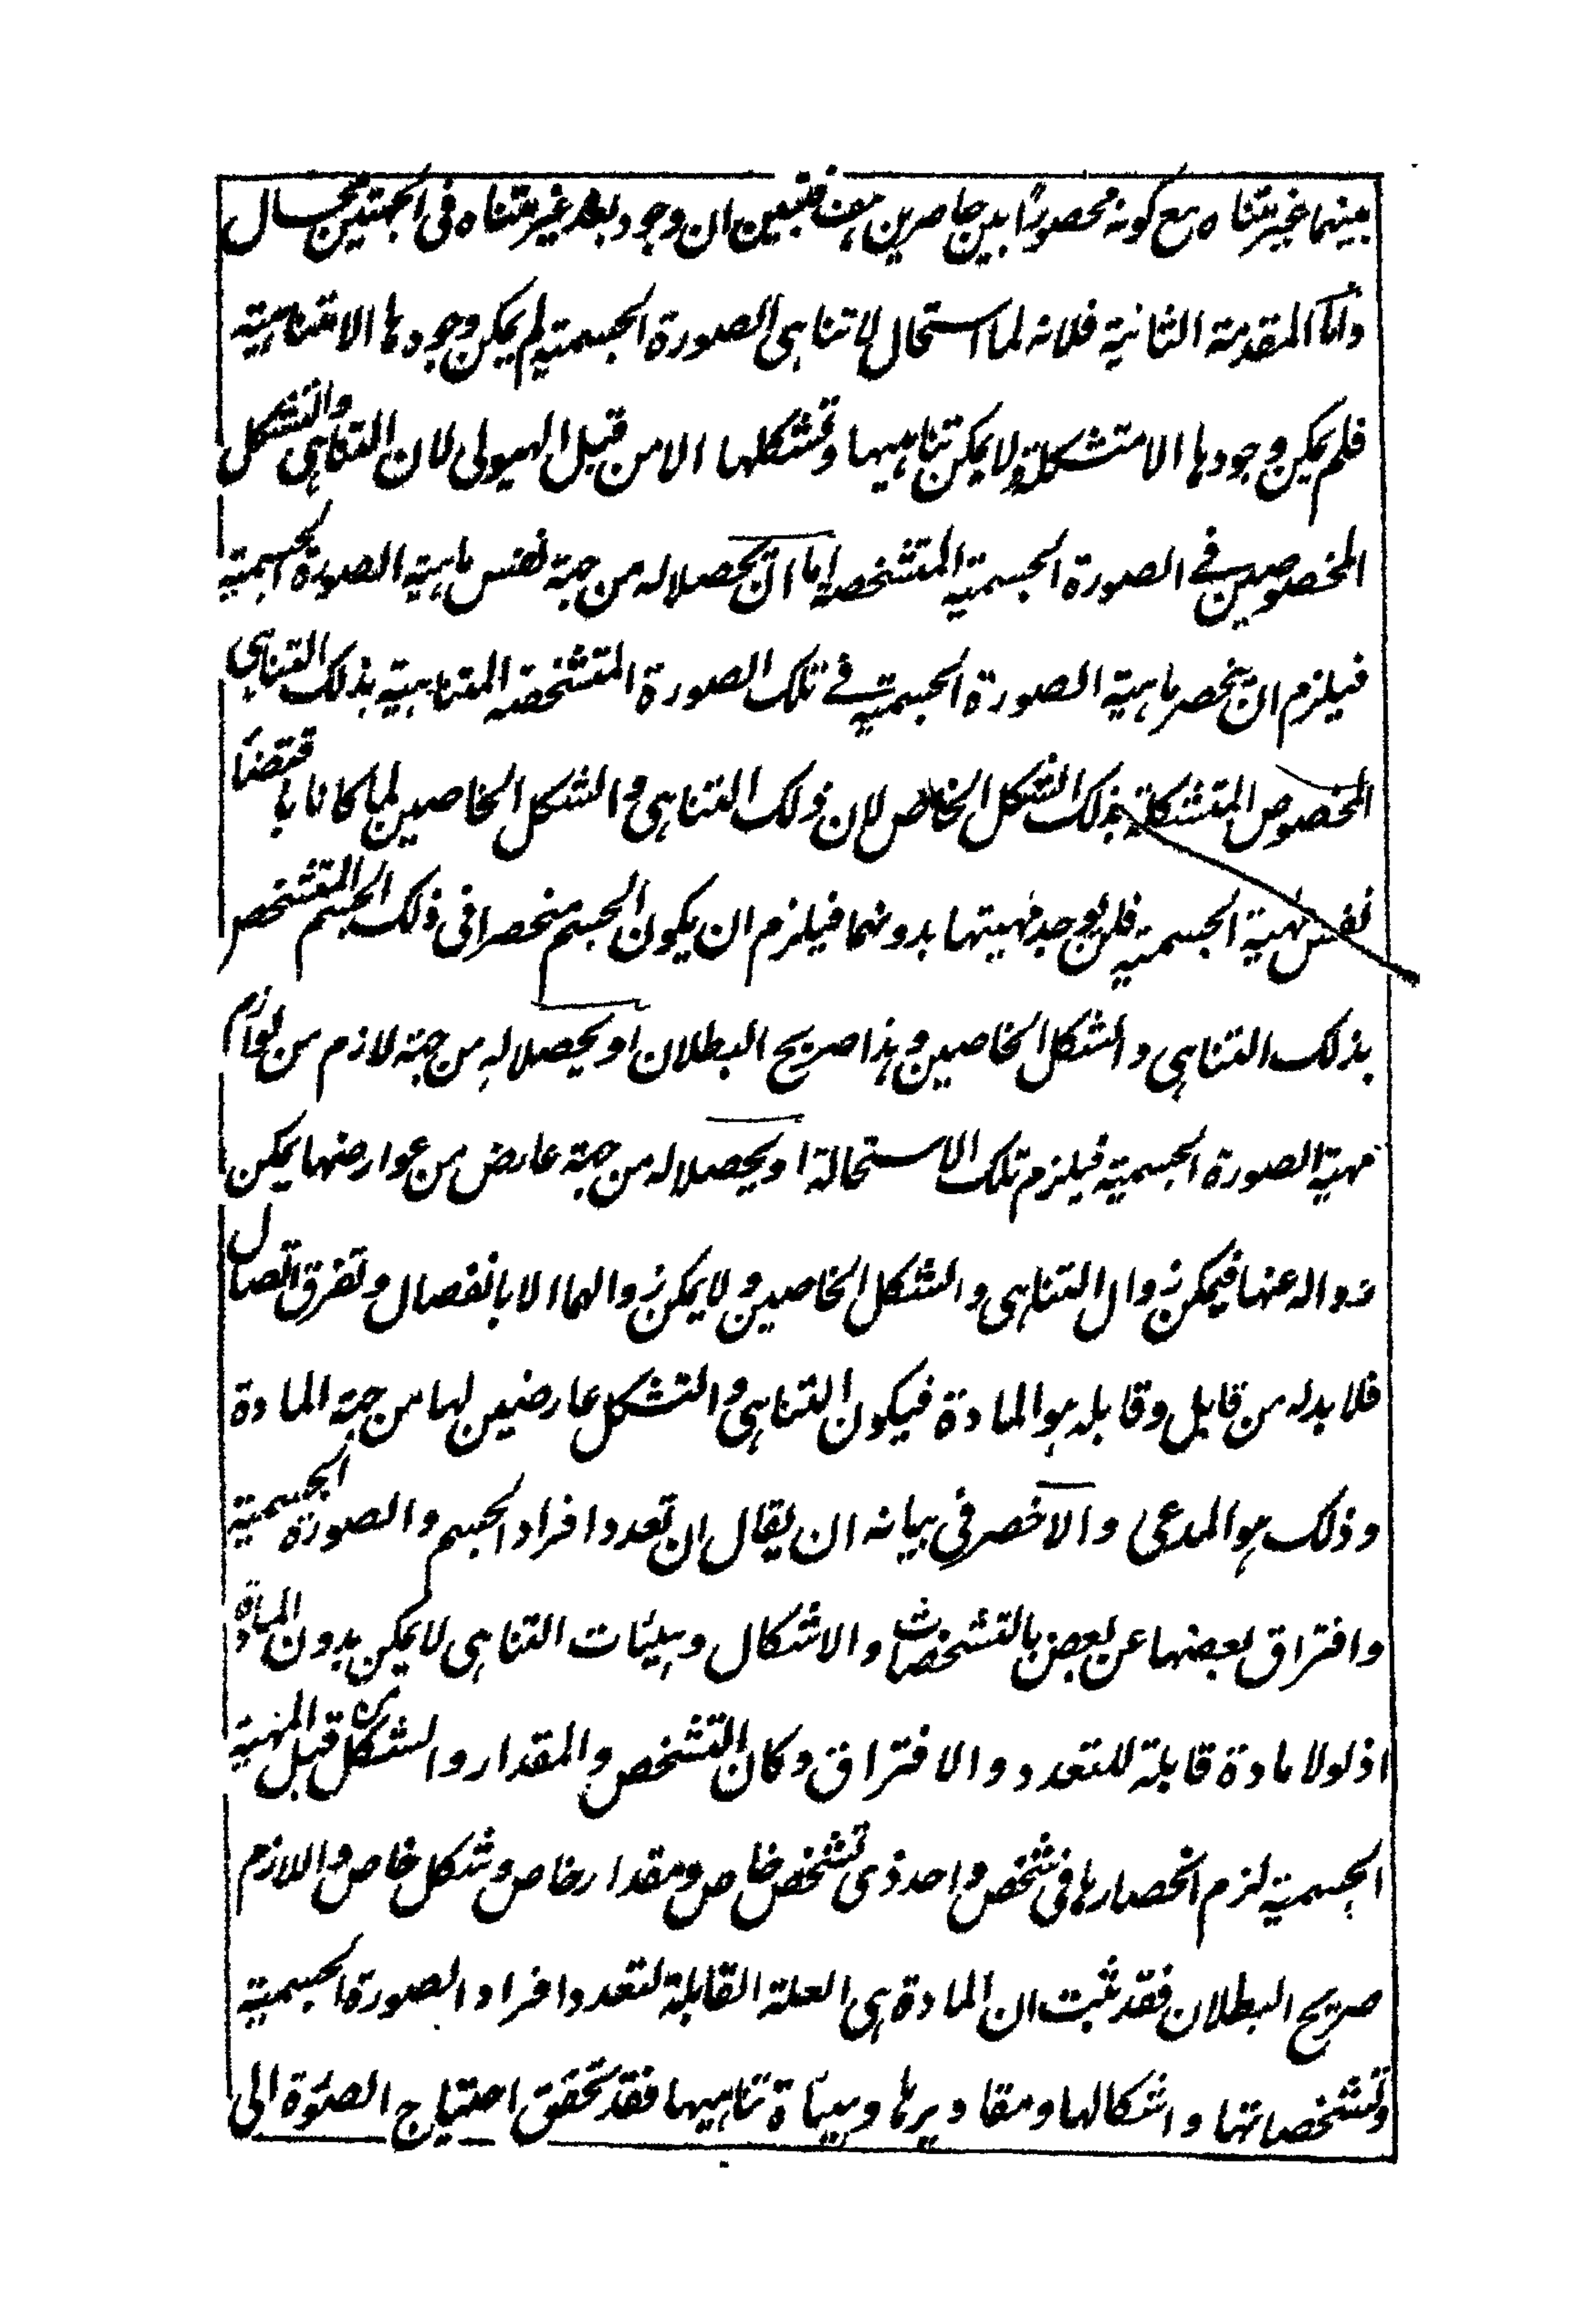 بينهما غير متناه مع كونه محصورا بين حاصرين هف فتبين ان وجود بعد غير متناه فى الجهتين محال
واما المقدمة الثانية فلانه لما استحال لا تناهى الصورة الجسمية لم يمكن وجودها الا متناهية
فلم يمكن وجودها الا متشكلة ولا يمكن تناهيها وتشكلها الا من قبل الهيولى لان التناهى والتشكل
المخصوصين فى الصورة الجسمية المتشخصة اما ان يحصلا له من جهة نفس ماهية الصورة الجسمية
فيلزم ان ينحصر ماهية الصورة الجسمية فى تلك الصورة المتشخصة المتناهية بذلك التناهى
المخصوص المتشكلة بذلك الشكل الخاص لان ذلك التناهى والشكل الخاصين لما كانا باقتضاء
نفس مهية الجسمية فلن يوجد مهيتها بدونهما فيلزم ان يكون الجسم منحصرا فى ذلك الجسم المتشخص
بذلك التناهى والشكل الخاصين وهذا صريح البطلان او يحصلا له من جهة لازم من لوازم
مهية الصورة الجسمية فيلزم تلك الاستحالة او يحصلا له من جهة عارض من عوارضها يمكن
زواله عنها فيمكن زوال التناهى والشكل الخاصين ولا يمكن زوالهما الا بانفصال وتفرق اتصال
فلا بد له من قابل وقابله هو المادة فيكون التناهى والتشكل عارضين لها من جهة المادة
وذلك هو المدعى والاخصر فى بيانه ان يقال ان تعدد افراد الجسم والصورة الجسمية
وافتراق بعضها عن بعض بالتشخصات والاشكال وهيئات التناهى لا يمكن بدون المادة
اذ لولا مادة قابلة للتعدد والافتراق وكان التشخص والمقدار والشكل من قبل المهية
الجسمية لزم انحصارها فى شخص واحد ذى تشخص خاص ومقدار خاص وشكل خاص واللازم
صريح البطلان فقد ثبت ان المادة هى العلة القابلة لتعدد افراد الصورة الجسمية
وتشخصاتها واشكالها ومقاديرها وهيئاة تناهيها فقد تحقق احتياج الصورة الى